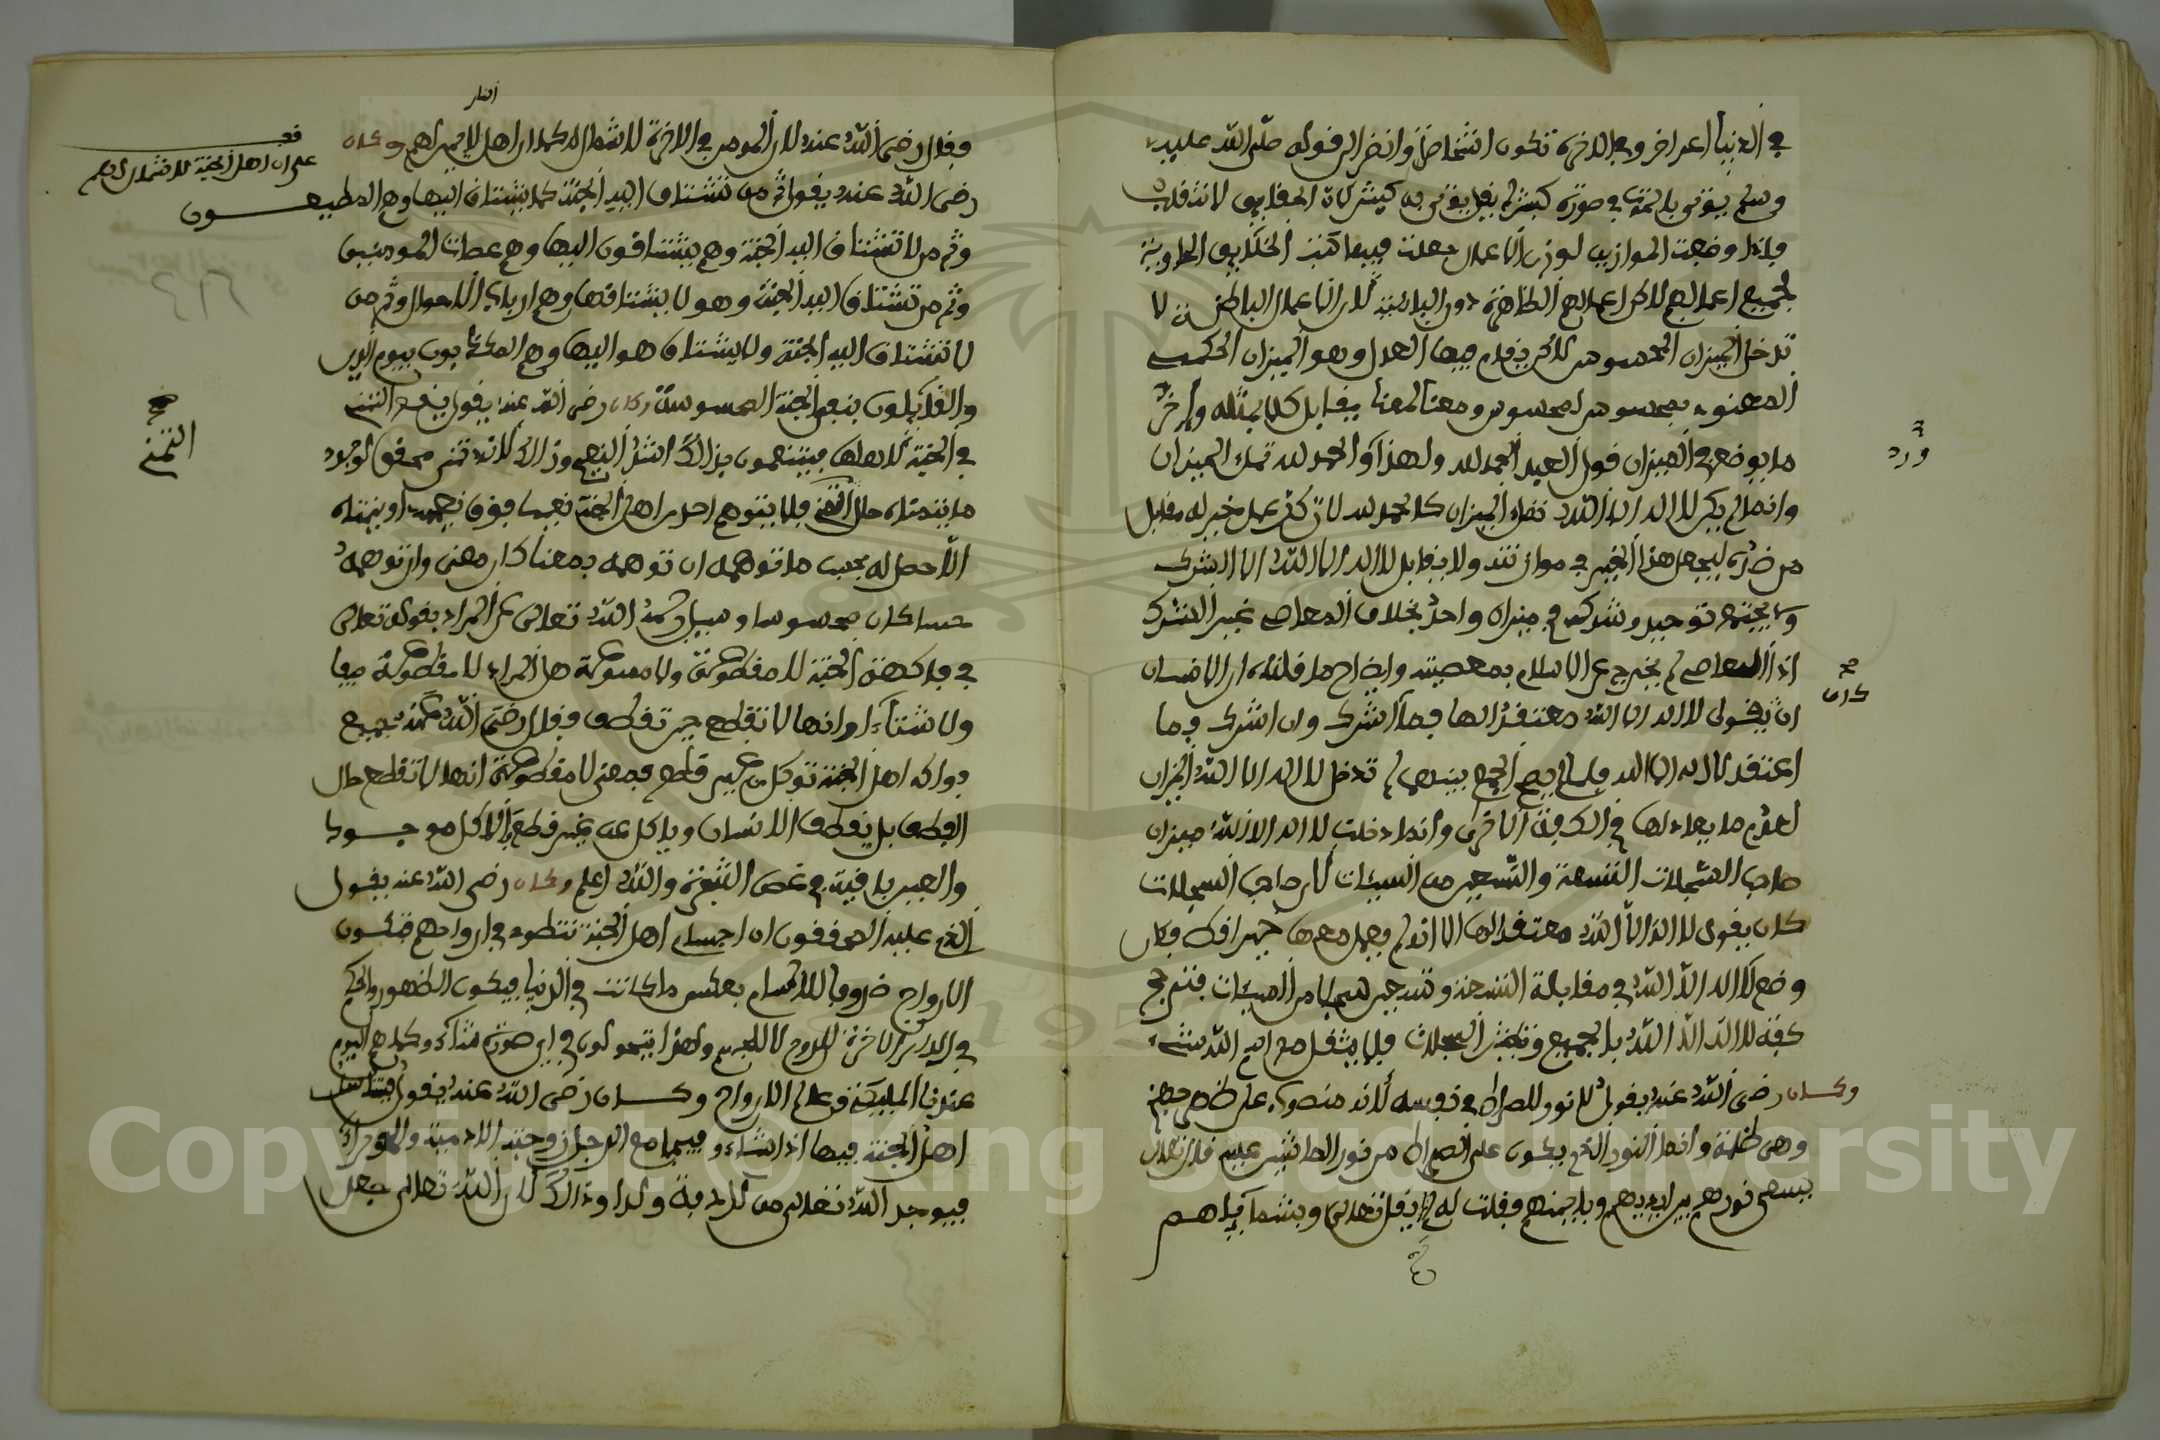 في الدنيا أعراض وفي الاخرة تكون اشخاصا وانظر الى قوله صلى الله عليه
وسلم يوتى بالموت في صورة كبش ولم يقل يوتى به كبش لان الحقايق لا تنقلب
فاذا وضعت الموازين لوزن الاعمال جعلت فيها كتب الخلايق الحاوية
لجميع اعمالهم لاكن اعمالهم الظاهرة دون الباطنة لان الاعمال الباطنة لا
تدخل الميزان المحسوس لاكن يقام فيها العدل وهو الميزان الحكمي
المعنوي فمحسوس لمحسوس ومعنا لمعنا يقابل كلا بمثله وءاخر
ما يوضع في الميزان قول العبد الحمد لله ولهذا ورد والحمد لله تملا الميزان
وانما لم يكن لا اله الا الله تملا الميزان كالحمد لله لان كل عمل خير له مقابل
من ضده ليجعل هذا الخير في موازنته ولا يقابل لا اله الا الله الا الشرك
ولا يجتمع توحيد وشرك في ميزان واحد بخلاف المعاصي غير الشرك
اذ العاصي لم يخرج عن الاسلام بمعصيته وايضاح ما قلناه ان الانسان
ان كان يقول لا اله الا الله معتقدا لها فما اشرك وان اشرك فما
اعتقد لا اله الا الله فلما لم يصح الجمع بينهما لم تدخل لا اله الا الله الميزان
لعدم ما يعادلها في الكفة الاخرى وانما دخلت لا اله الا الله ميزان
صاحب السجلات التسعة والتسعين من السيئات لان صاحب السجلات
كان يقول لا اله الا الله معتقدا لها الا انه لم يعمل معها خيرا قط فكان
وضع لا اله الا الله في مقابلة التسعة وتسعين سجلا من السيئات فترجح
كفة لا اله الا الله بالجميع وتطيش السجلات فلا يثقل مع اسم الله شيء
وكان رضي الله عنه يقول لا نور للصراط في نفسه لانه منصوب على ظهر جهنم
وهي ظلمة وانما النور الذي يكون على الصراط من نور الماشين عليه قال تعالى
يسعى نورهم بين ايديهم وبايمنهم وقلت له لم لم يقل تعالى وبشمايلهم
ورد
صح
كان
فقال رضي الله عنه لان المومن في الاخرة لا شمال له كما ان اهل النار لا يمين لهم وكان
رضي الله عنه يقول ثم من تشتاق اليه الجنة كما يشتاق اليها وهم المطيعون
وثم من لا تشتاق اليه الجنة وهم يشتاقون اليها وهم عصات المومنين
وثم من تشتاق اليه الجنة وهو لا يشتاقها وهم ارباب الاحوال وثم من
لا تشتاق اليه الجنة ولا يشتاق هو اليها وهم المكذبون بيوم الدين
والقايلون بنفي الجنة المحسوسة وكان رضي الله عنه يقول يقع التمني
في الجنة لاهلها فيتنعمون بذالك اشد النعيم وذالك لانه تمني محقق لوجود
ما يتمناه حال التمني فلا يتوهم احد من اهل الجنة نعيما فوق نعيمه او يتمناه
الا حصل له بحسب ما توهمه ان توهمه بمعنا كان معنى وان توهمه
حسا كان محسوسا وسيل رضي الله تعالى عن المراد بقوله تعالى
في فاكهة الجنة لا مقطوعة ولا ممنوعة هل المراد لا مقطوعة صيفا
ولا شتاء او انها لا تقطع حين تقطف فقال رضي الله عنه جميع
فواكه اهل الجنة توكل من غير قطع فمعنى لا مقطوعة انها لا تقطع حال
القطف بل يقطف الانسان وياكل من غير قطع فالاكل موجود
والعين باقية في غصن الشجرة والله اعلم وكان رضي الله عنه يقول
الذي عليه المحققون ان اجسام اهل الجنة تنطوي في ارواحهم فتكون
الارواح ظروفا للاجسام بعكس ما كانت في الدنيا فيكون الظهور والحكم
في الدار الاخرة للروح لا للجسم ولهذا يتحولون في اي صورة شاءوا كما هم اليوم
عندنا الملئكة وعالم الارواح وكان رضي الله عنه يقول يتناسل
اهل الجنة فيها اذا شاءوا فيجامع الرجل زوجته الادمية والحوراء
فيوجد الله تعالى من الادمية ولدا وذالك لان الله تعالى جعل
انظر
قف
على ان اهل الجنة لا شمال لهم
صح
التمني